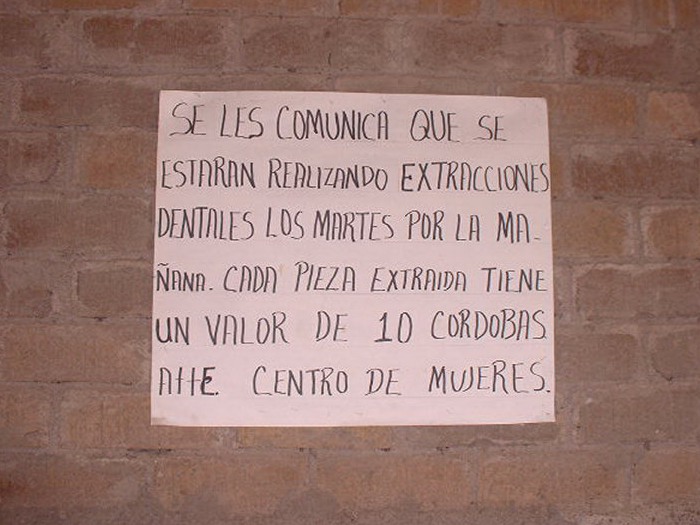 SE LES COMUNICA QUE SE
ESTARAN REALIZANDO EXTRACCIONES
DENTALES LOS MARTES POR LA MA-
ÑANA. CADA PIEZA EXTRAIDA TIENE
UN VALOR DE 10 CORDOBAS.
Atte. CENTRO DE MUJERES.